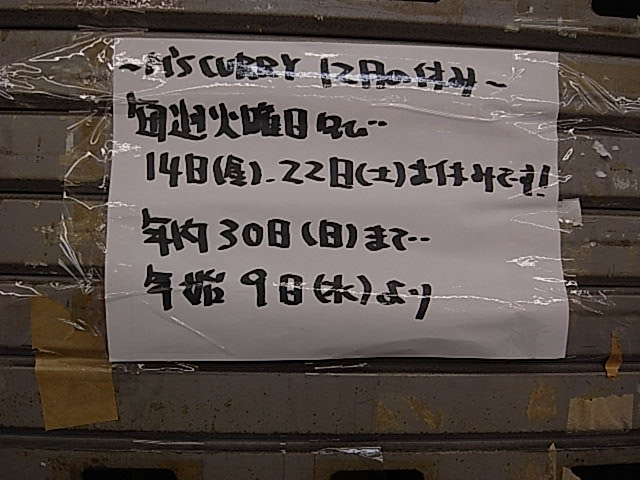 ~M's CURRY 12月の休み~
毎週火曜日
14日(金)、22日(土)お休みです!
年内 30日(日)まで‥
年始 9日(水)より